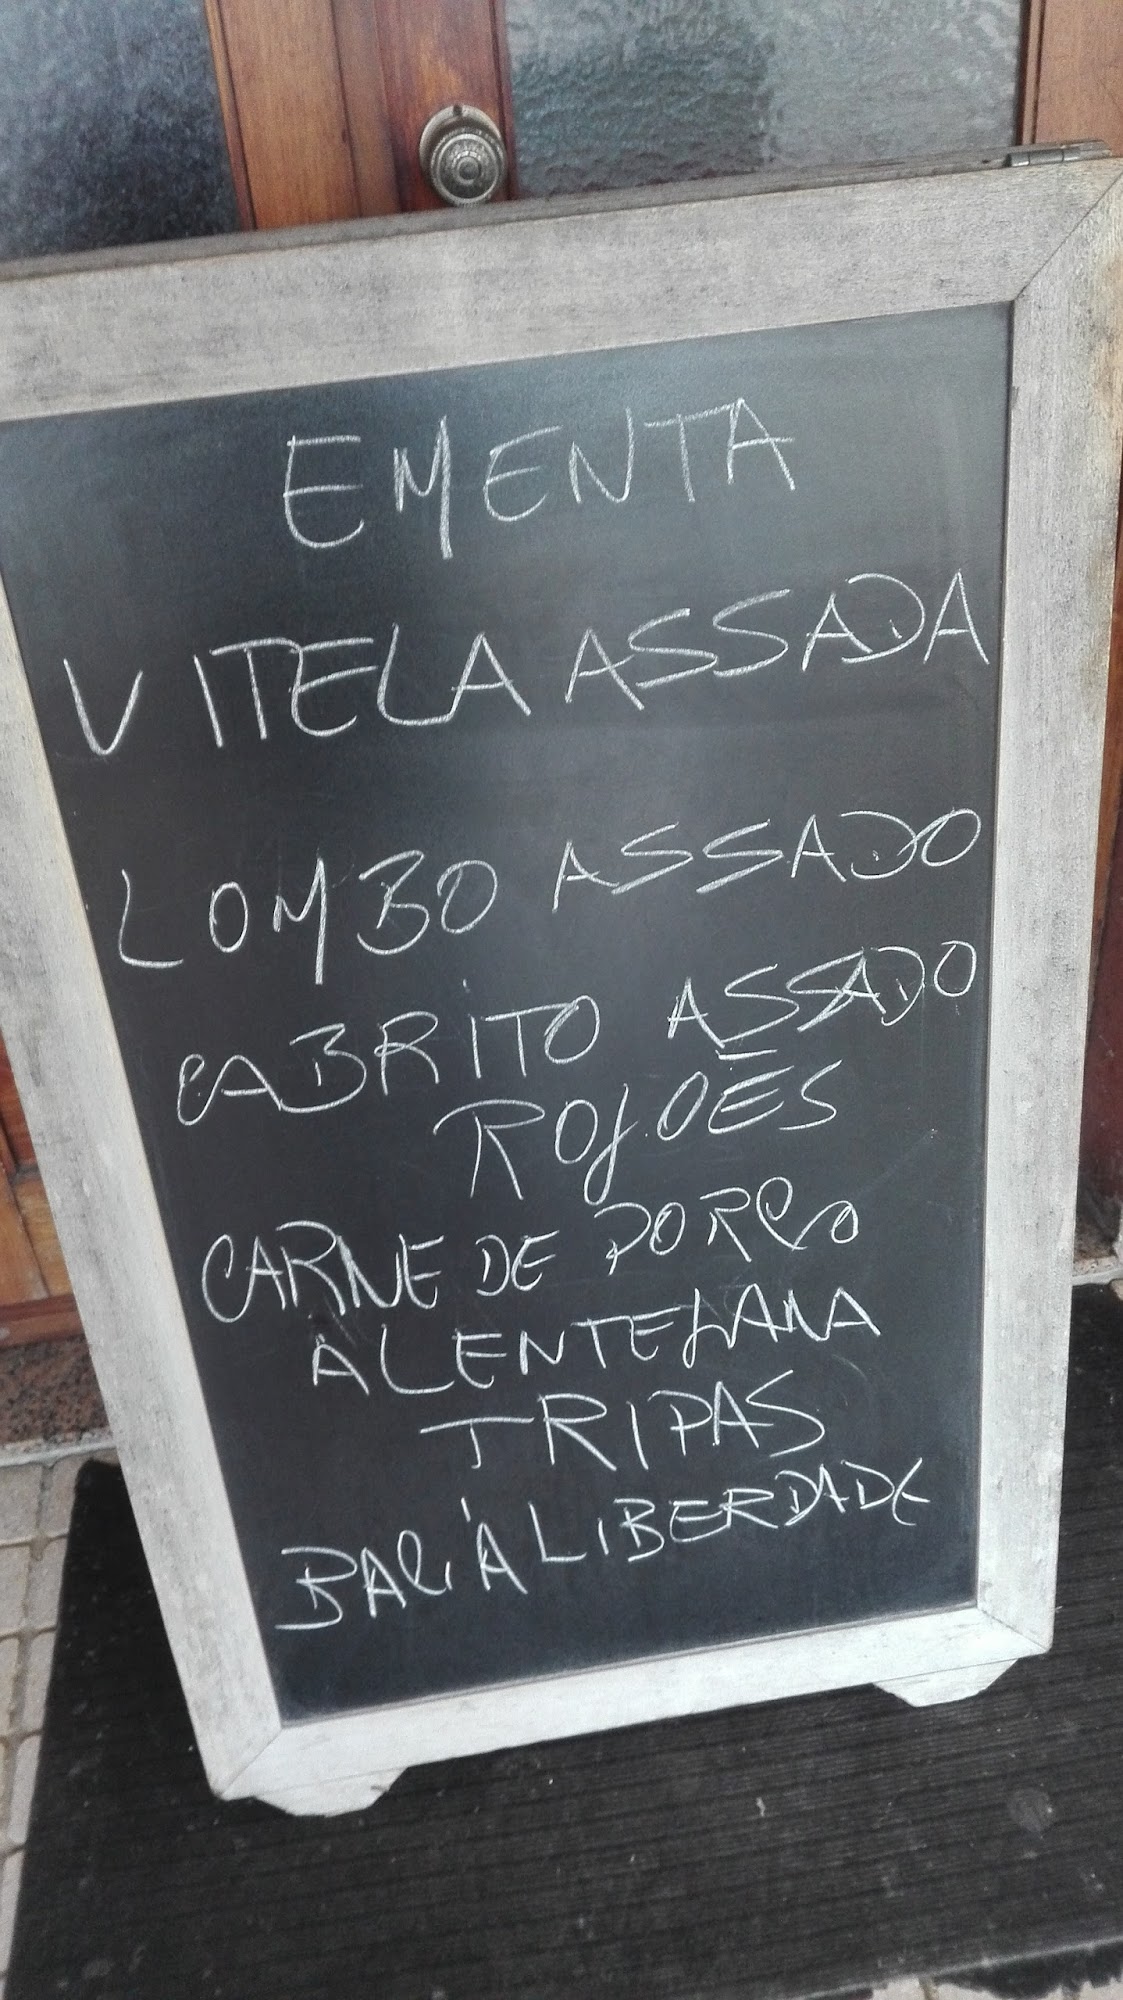 EMENTA
VITELA ASSADA
LOMBO ASSADO
CABRITO ASSADO
ROJÕES
CARNE DE PORCO
À LENTEJANA
TRIPAS
BAC. À LIBERDADE